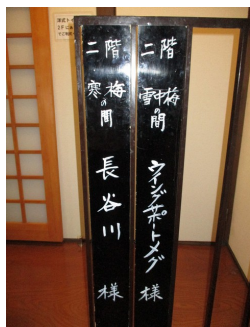 二階
雪中梅の間
ウイングサポートメグ
様
二階
寒梅の間
長谷川
様